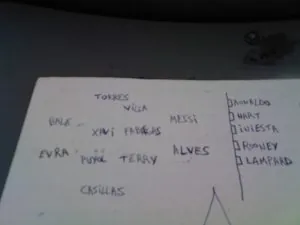 TORRES
VILLA
BALE MESSI
XAVI FABREGAS
EVRA PUYOL TERRY ALVES
CASILLAS
RONALDO
HART
INIESTA
ROONEY
LAMPARD